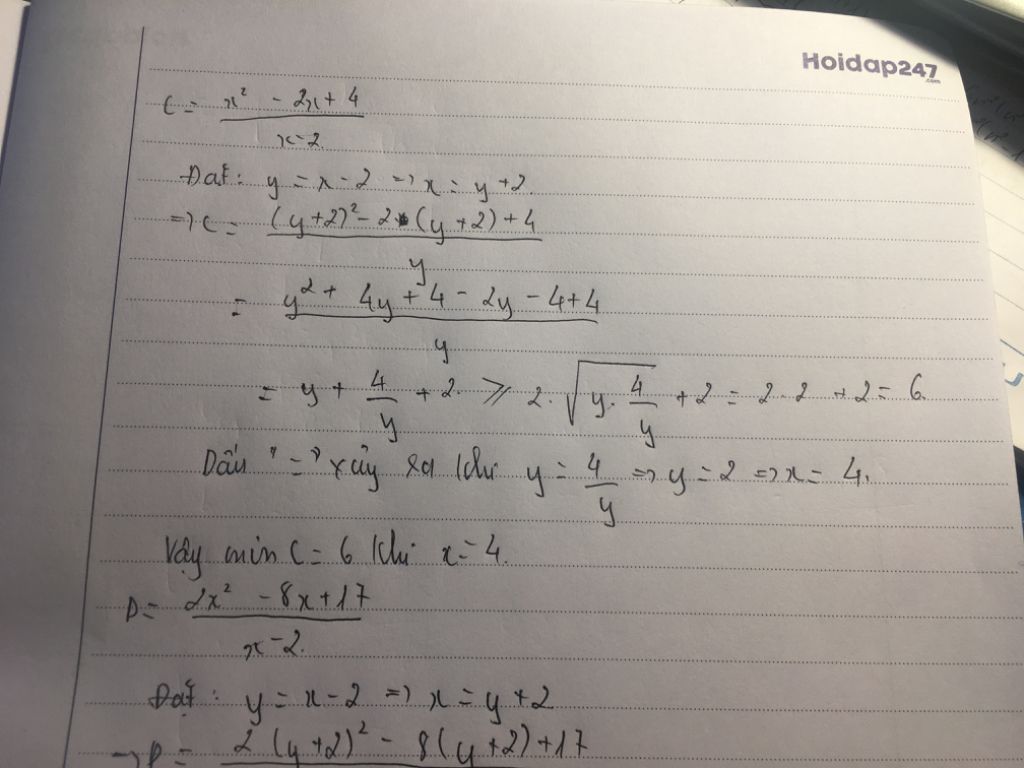 Hoidap247
.com
C = x² - 2x + 4
x - 2
Đặt: y = x - 2 => x = y + 2
=> C = (y+2)² - 2 (y+2) + 4
y
= y² + 4y + 4 - 2y - 4 + 4
y
= y + 4/y + 2 ⩾ 2. √(y. 4/y) + 2 = 2.2 + 2 = 6
Dấu "=" xảy ra khi y = 4/y => y = 2 => x = 4.
Vậy min C = 6 khi x = 4.
D = 2x² - 8x + 17
x - 2.
Đặt: y = x - 2 => x = y + 2
=> D = 2 (y+2)² - 8(y+2) + 17